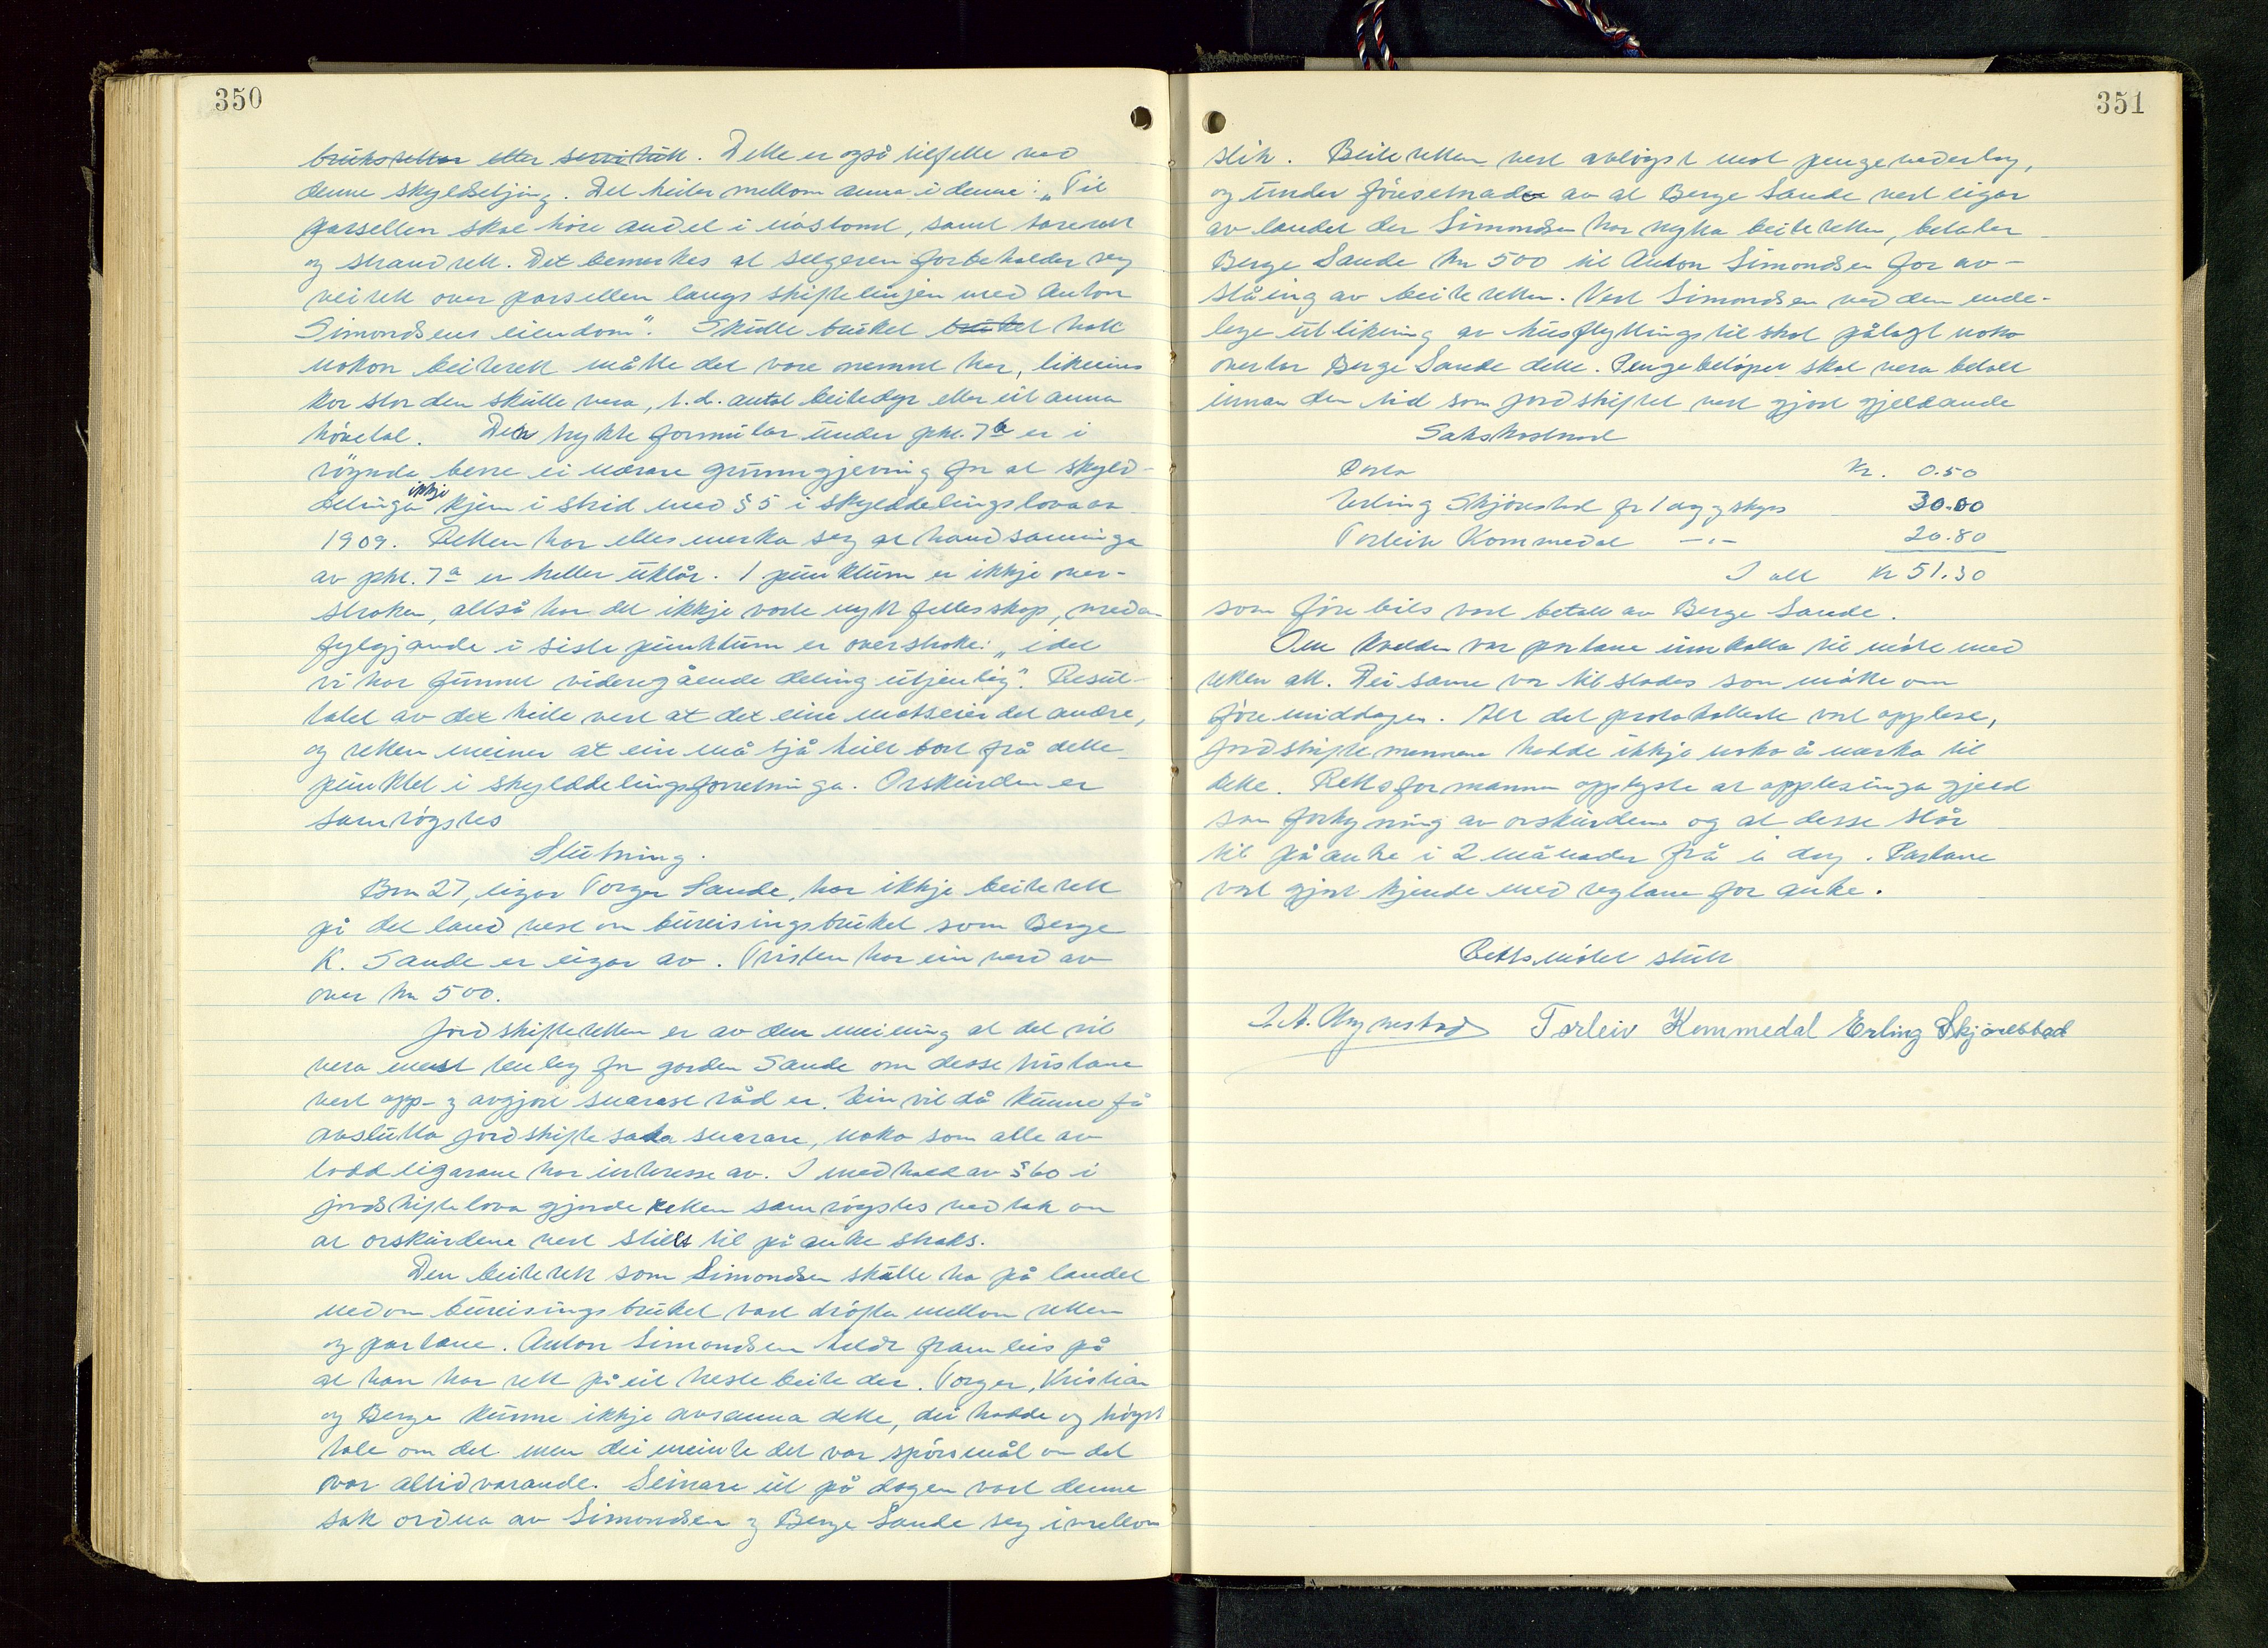 350
bruksretter etter servitutt. Dette er også tilfelle ved
denne skyldsetjing. Det heiter mellom anna i denne: „Til
parsellen skal höre andel i nåstomt, samt tarerett
og strandrett. Det bemerkes at selgeren forbeholder seg
veirett over parsellen langs skiftelinjen med Anton
Simondsens eiendom". Skulle bruket bruket hatt
nokon beiterett måtte det vore nemnt her, likeeins
kor stor den skulle vera, t.d. antal beitedyr eller eit anna
hövetal. Den trykte formular under pkt. 7a er i
röynda berre ei nærare grunngjeving for at skyld-
delinga ikkje kjem i strid med § 5 i skylddelingslova av
1909. Retten har elles merka seg at handsaminga
av pkt. 7a er heller uklår. 1 punktum er ikkje over-
stroken, altså har det ikkje vorte nytt fellesskap, medan
fylgjande i siste punktum er overstroke: „idet
vi har funnet videregående deling utjenlig". Resul-
tatet av det heile vert at det eine motseier det andre,
og retten meiner at ein må sjå heilt bort frå dette
punktet i skylddelingsforretninga. Orskurden er
samröystes
Slutning.
Brn 27, eigar Torger Sande, har ikkje beiterett
på det land vest om bureisingsbruket som Berge
K. Sande er eigar av. Tvisten har ein verd av
over kr 500.
Jordskifteretten er av den meining at det vil
vera mest tenleg for garden Sande om desse tvistane
vert opp- og avgjort snarast råd er. Ein vil då kunne få
avslutta jordskiftesaka snarare, noko som alle av
loddeigarane har interesse av. I medhald av § 60 i
jordskiftelova gjorde retten samröystes vedtak om
at orskurdene vert stillt til på anke straks.
Den beiterett som Simondsen skulle ha på landet
nedom bureisingsbruket vart dröfta mellom retten
og partane. Anton Simondsen heldt framleis på
at han har rett på eit hestebeite der. Torger, Kristian
og Berge kunne ikkje avsanna dette, dei hadde og höyrt
tale om det men dei meinte det var spörsmål om det
var alltidvarande. Seinare ut på dagen vart denne
sak ordna av Simondsen og Berge Sande seg imellom
351
slik. Beiteretten vert avlöyst mot pengevederlag,
og under föresetnad av at Berge Sande vert eigar
av landet der Simondsen har nytta beiteretten, betaler
Berge Sande kr 500 til Anton Simondsen for av-
ståing av beiteretten. Vert Simondsen ved den ende-
lege utlikning av husflyttingstilskot pålagt noko
overtar Berge Sande dette. Pengebelöpet skal vera betalt
innan den tid som jordskiftet vert gjort gjeldande
Sakskostnad
Porto Kr. 0.50
Erling Skjörestad for 1 dag og skyss 30.00
Torleiv Kommedal —„— 20.80
I alt Kr 51.30
som förebils vart betalt av Berge Sande.
Om kvelden var partane innkalla til möte med
retten att. Dei same var tilstades som mötte om
föremiddagen. Alt det protokollerte vart opplese,
jordskiftemennene hadde ikkje noko å merka til
dette. Rettsformannen opplyste at opplesinga gjeld
som forkynning av orskurdene og at desse står
til på anke i 2 månader frå i dag. Partane
vart gjort kjende med reglane for anke.
Rettsmötet slutt
Torleiv Kommedal Erling Skjörestad